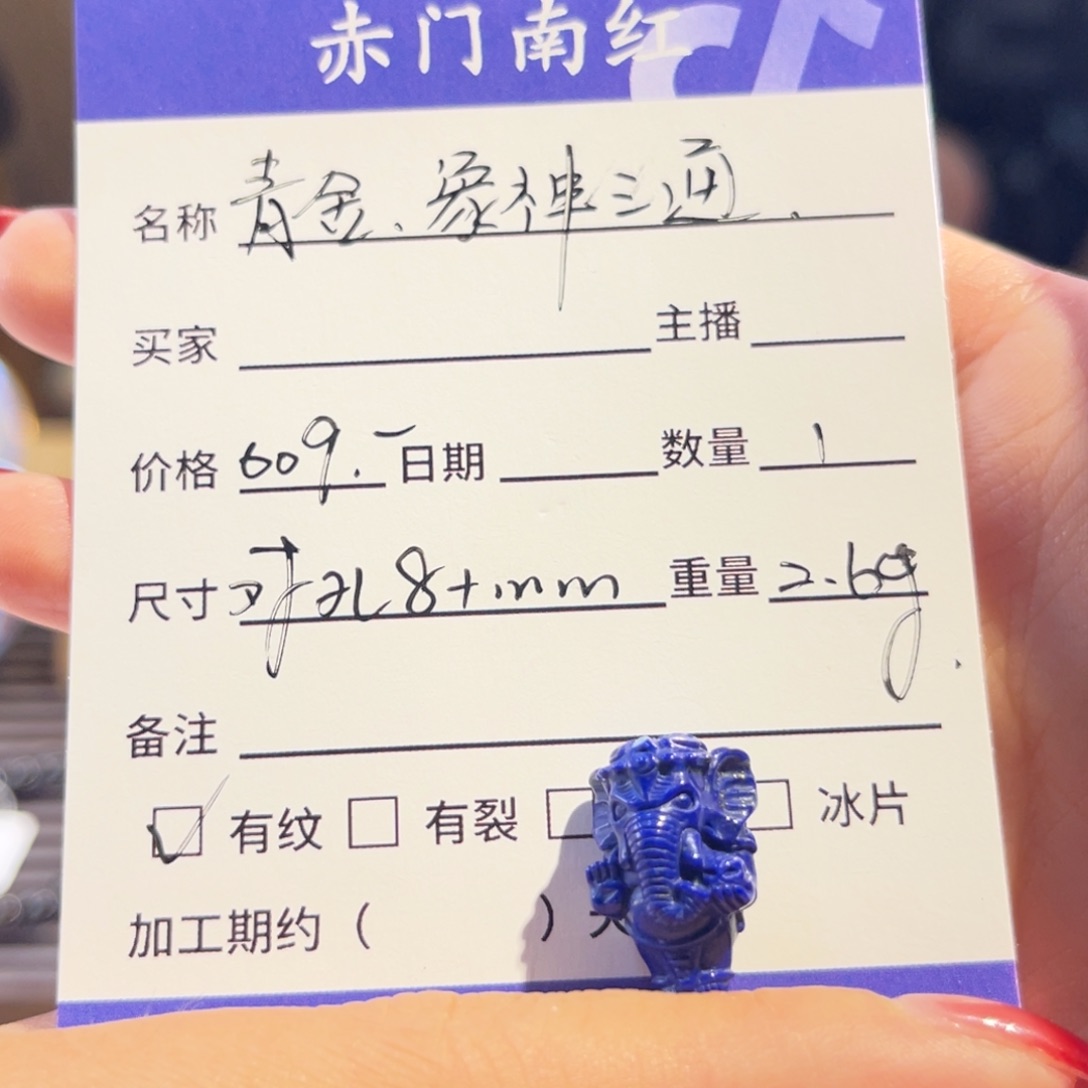 赤门南红
名称 青金、象神三通、
买家 主播
价格 609.- 日期 数量 1
尺寸 对孔8+mm 重量 2.6g
备注
有纹 有裂 冰片
加工期约( )天